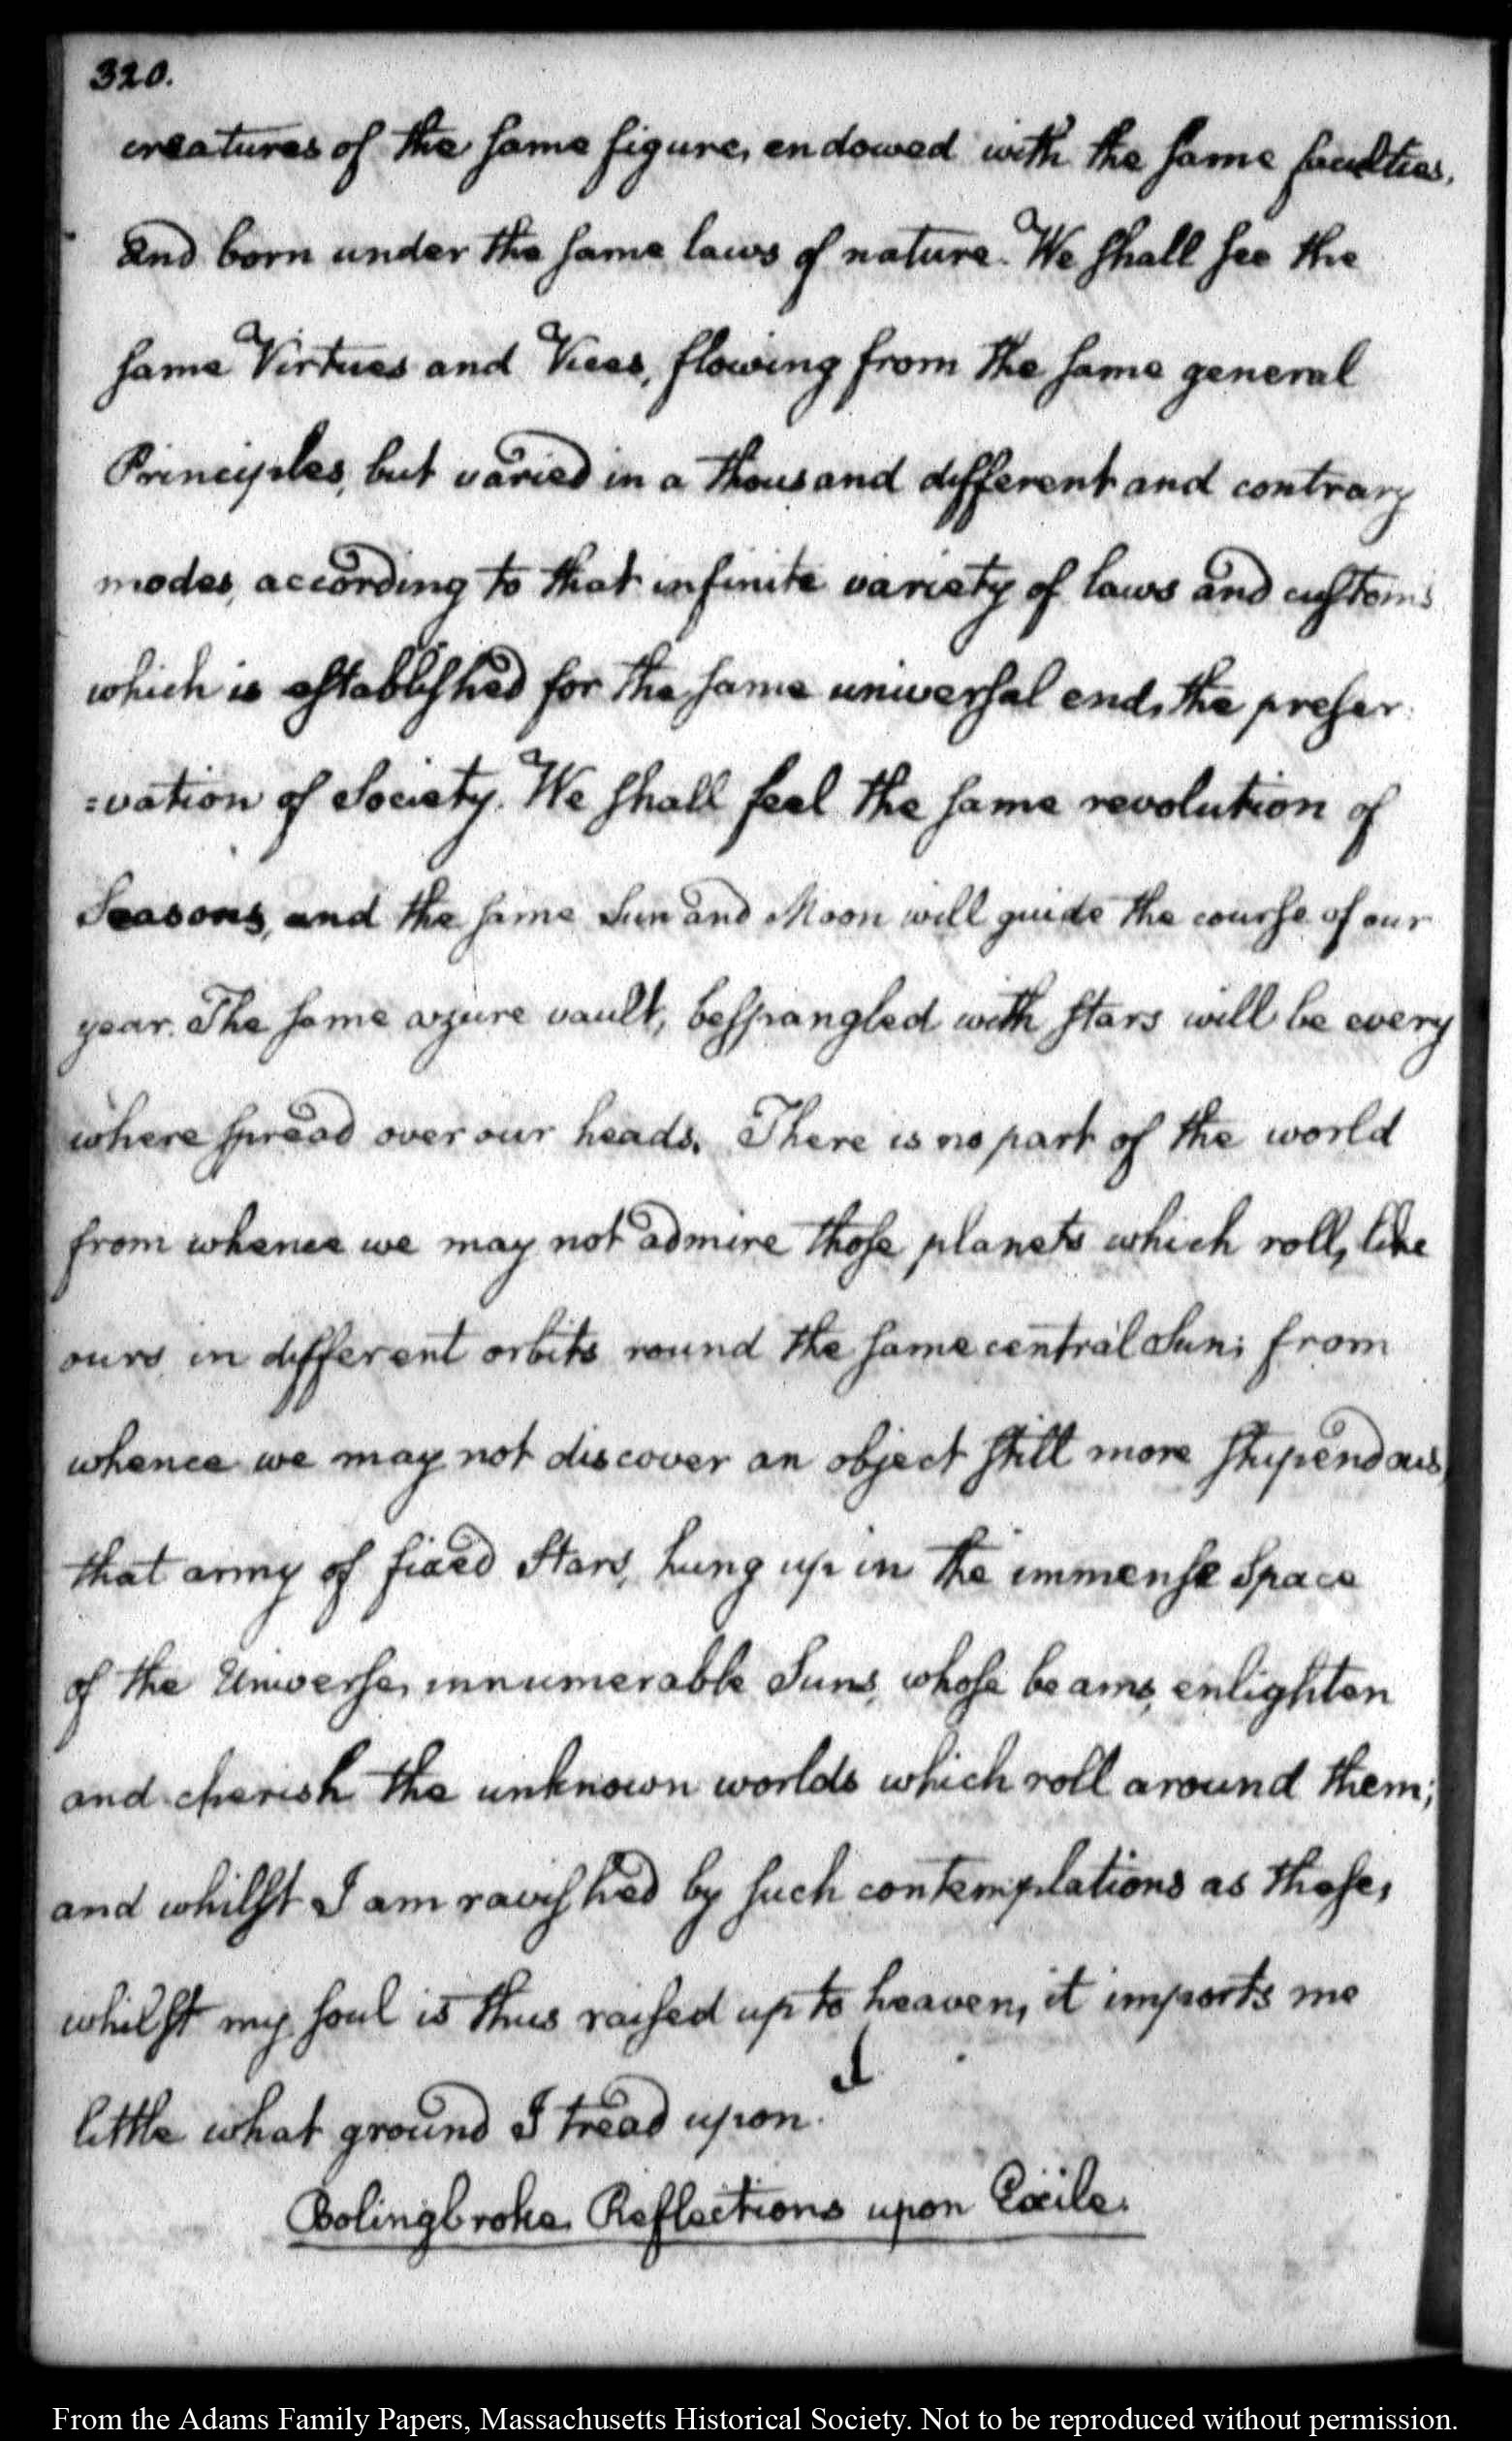 320.
creatures of the same figure, endowed with the same faculties,
and born under the same laws of nature. We shall see the
same Virtues and Vices, flowing from the same general
Principles, but varied in a thousand different and contrary
modes, according to that infinite variety of laws and customs
which is established for the same universal end, the preser
=vation of Society. We shall feel the same revolution of
Seasons, and the same Sun and Moon will guide the course of our
year. The same azure vault, bespangled with stars will be every
where spread over our heads. There is no part of the world
from whence we may not admire those planets which roll, like
ours in different orbits round the same central Sun; from
whence we may not discover an object still more stupendous,
that army of fixed Stars, hung up in the immense Space
of the Universe, innumerable Suns, whose beams, enlighten
and cherish the unknown worlds which roll around them;
and whilst I am ravished by such contemplations as these,
whilst my soul is thus raised up to heaven, it imports me
little what ground I tread upon.
Bolingbroke. Reflections upon Exile.
From the Adams Family Papers, Massachusetts Historical Society. Not to be reproduced without permission.